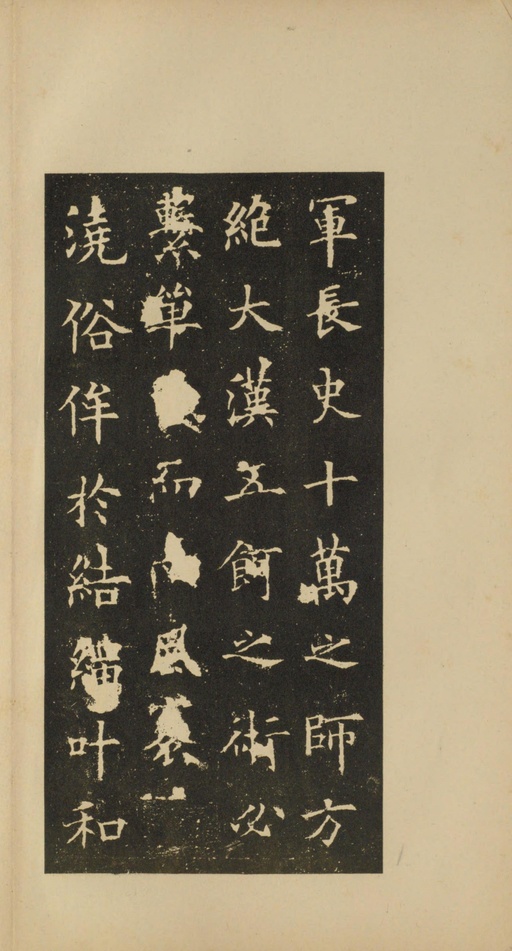 軍長史十萬之師方
絶大漢五餌之術必
繫單而風裒
澆俗侔於結繩叶和